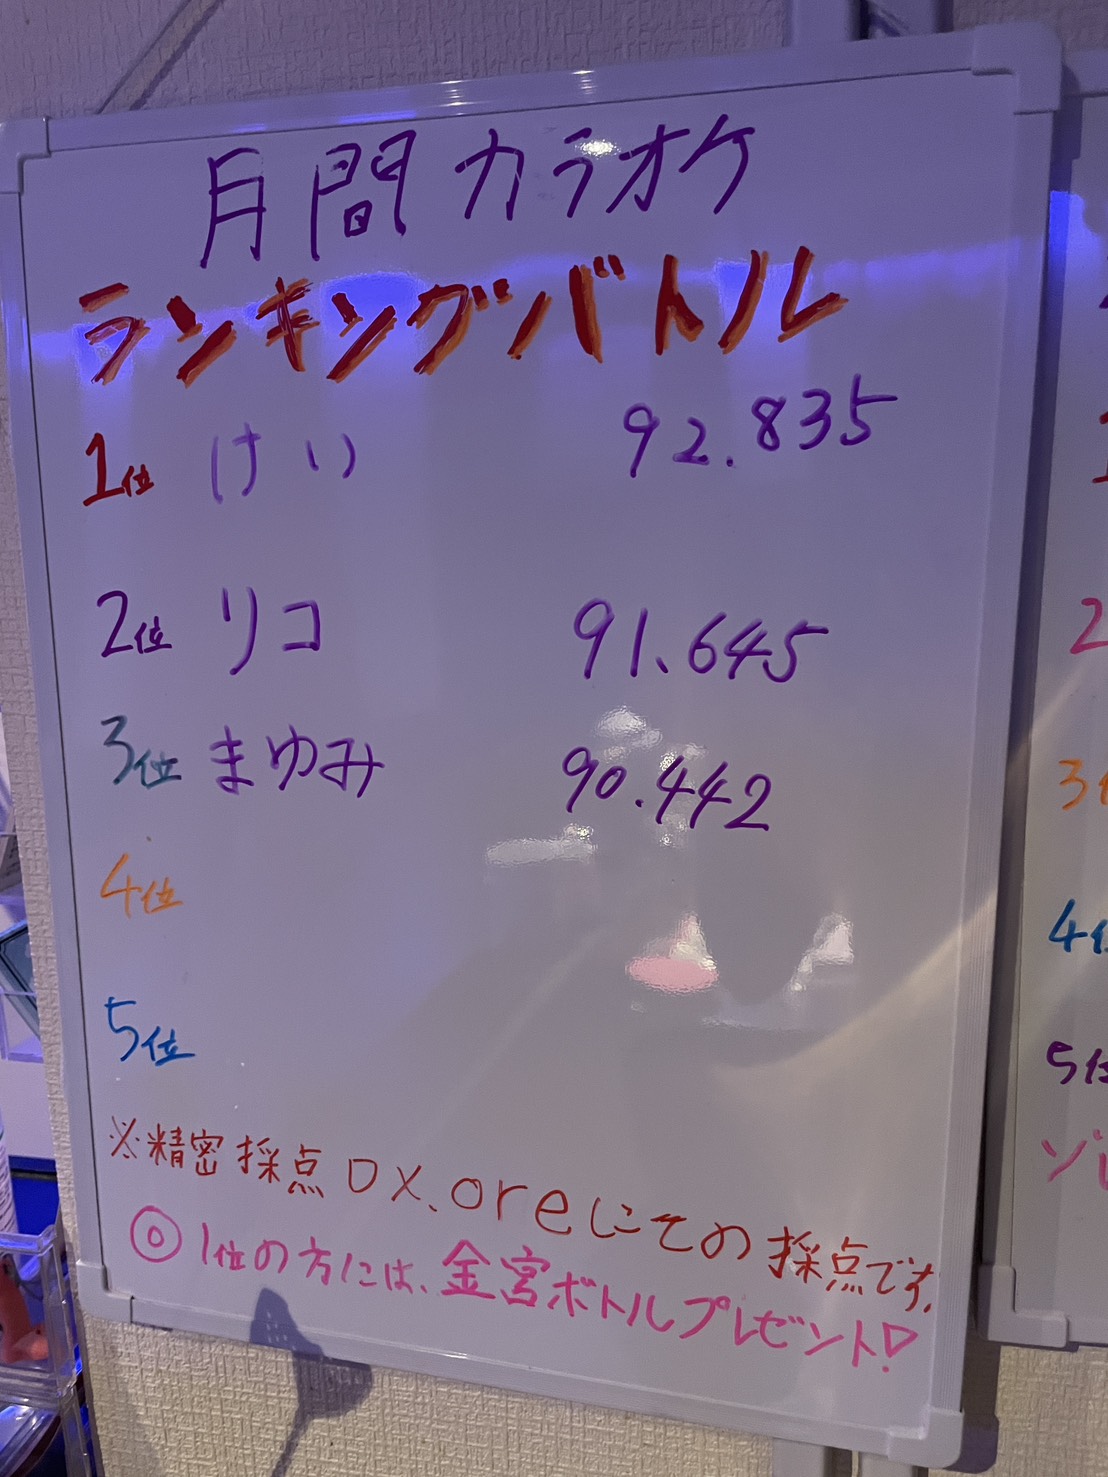 月間カラオケ
ランキングバトル
1位 けい 92.835
2位 リコ 91.645
3位 まゆみ 90.442
4位
5位
※精密採点DX.oreにての採点です.
◎1位の方には、金宮ボトルプレゼント!
1
2
3位
4位
5位